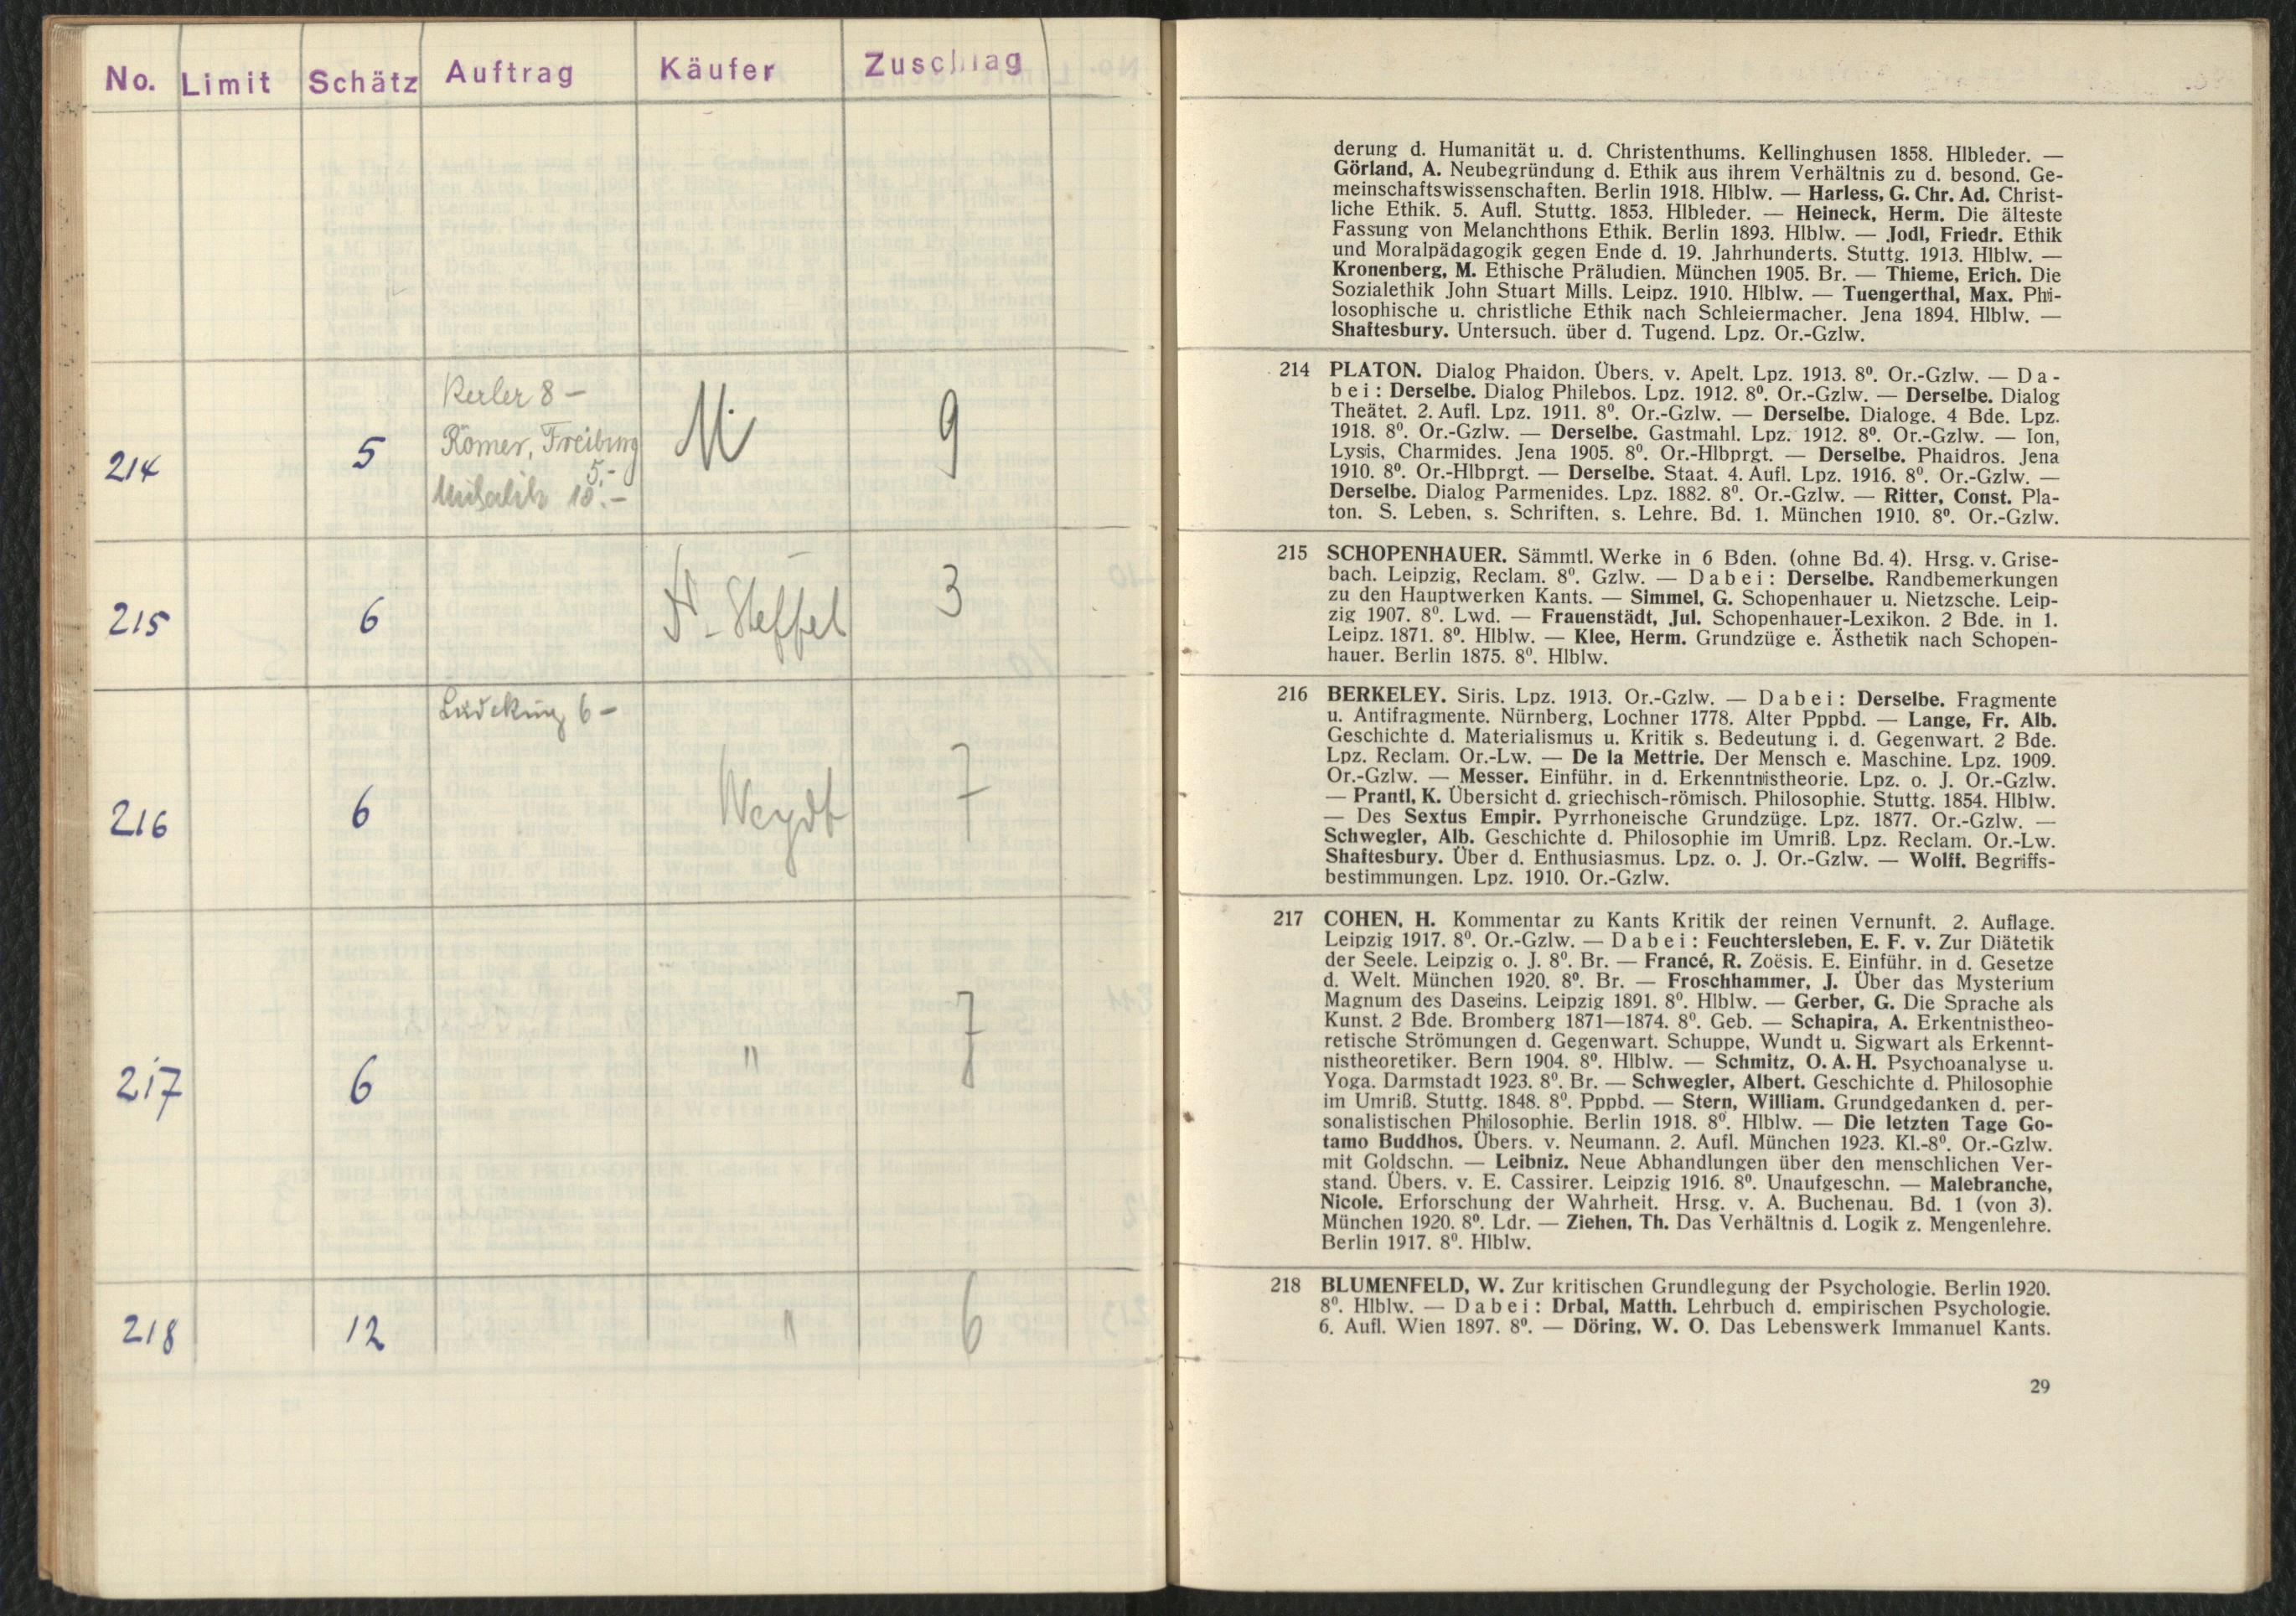 No. Limit Schätz Auftrag Käufer Zuschlag
Kerler 8 –
Römer, Freiburg
5.-
214 5 M 9
10.–
215 6 Steffel 3
Lüdeking 6 –
216 6 Weydt 7
217 6 " 7
218 12 " 6
derung d. Humanität u. d. Christenthums. Kellinghusen 1858. Hlbleder. —
Görland, A. Neubegründung d. Ethik aus ihrem Verhältnis zu d. besond. Ge-
meinschaftswissenschaften. Berlin 1918. Hlblw. — Harless, G. Chr. Ad. Christ-
liche Ethik. 5. Aufl. Stuttg. 1853. Hlbleder. — Heineck, Herm. Die älteste
Fassung von Melanchthons Ethik. Berlin 1893. Hlblw. — Jodl, Friedr. Ethik
und Moralpädagogik gegen Ende d. 19. Jahrhunderts. Stuttg. 1913. Hlblw. —
Kronenberg, M. Ethische Präludien. München 1905. Br. — Thieme, Erich. Die
Sozialethik John Stuart Mills. Leipz. 1910. Hlblw. — Tuengerthal, Max. Phi-
losophische u. christliche Ethik nach Schleiermacher. Jena 1894. Hlblw. —
Shaftesbury. Untersuch. über d. Tugend. Lpz. Or.-Gzlw.
214 PLATON. Dialog Phaidon. Übers. v. Apelt. Lpz. 1913. 8⁰. Or.-Gzlw. — Da-
bei: Derselbe. Dialog Philebos. Lpz. 1912. 8⁰. Or.-Gzlw. — Derselbe. Dialog
Theätet. 2. Aufl. Lpz. 1911. 8⁰. Or.-Gzlw. — Derselbe. Dialoge. 4 Bde. Lpz.
1918. 8⁰. Or.-Gzlw. — Derselbe. Gastmahl. Lpz. 1912. 8⁰. Or.-Gzlw. — Ion,
Lysis, Charmides. Jena 1905. 8⁰. Or.-Hlbprgt. — Derselbe. Phaidros. Jena
1910. 8⁰. Or.-Hlbprgt. — Derselbe. Staat. 4. Aufl. Lpz. 1916. 8⁰. Or.-Gzlw. —
Derselbe. Dialog Parmenides. Lpz. 1882. 8⁰. Or.-Gzlw. — Ritter, Const. Pla-
ton. S. Leben, s. Schriften, s. Lehre. Bd. 1. München 1910. 8⁰. Or.-Gzlw.
215 SCHOPENHAUER. Sämmtl. Werke in 6 Bden. (ohne Bd. 4). Hrsg. v. Grise-
bach. Leipzig, Reclam. 8⁰. Gzlw. — Dabei: Derselbe. Randbemerkungen
zu den Hauptwerken Kants. — Simmel, G. Schopenhauer u. Nietzsche. Leip-
zig 1907. 8⁰. Lwd. — Frauenstädt, Jul. Schopenhauer-Lexikon. 2 Bde. in 1.
Leipz. 1871. 8⁰. Hlblw. — Klee, Herm. Grundzüge e. Ästhetik nach Schopen-
hauer. Berlin 1875. 8⁰. Hlblw.
216 BERKELEY. Siris. Lpz. 1913. Or.-Gzlw. — Dabei: Derselbe. Fragmente
u. Antifragmente. Nürnberg, Lochner 1778. Alter Pppbd. — Lange, Fr. Alb.
Geschichte d. Materialismus u. Kritik s. Bedeutung i. d. Gegenwart. 2 Bde.
Lpz. Reclam. Or.-Lw. — De la Mettrie. Der Mensch e. Maschine. Lpz. 1909.
Or.-Gzlw. — Messer. Einführ. in d. Erkenntnistheorie. Lpz. o. J. Or.-Gzlw.
— Prantl, K. Übersicht d. griechisch-römisch. Philosophie. Stuttg. 1854. Hlblw.
— Des Sextus Empir. Pyrrhoneische Grundzüge. Lpz. 1877. Or.-Gzlw. —
Schwegler, Alb. Geschichte d. Philosophie im Umriß. Lpz. Reclam. Or.-Lw.
Shaftesbury. Über d. Enthusiasmus. Lpz. o. J. Or.-Gzlw. — Wolff. Begriffs-
bestimmungen. Lpz. 1910. Or.-Gzlw.
217 COHEN, H. Kommentar zu Kants Kritik der reinen Vernunft. 2. Auflage.
Leipzig 1917. 8⁰. Or.-Gzlw. — Dabei: Feuchtersleben, E. F. v. Zur Diätetik
der Seele. Leipzig o. J. 8⁰. Br. — Francé, R. Zoësis. E. Einführ. in d. Gesetze
d. Welt. München 1920. 8⁰. Br. — Froschhammer, J. Über das Mysterium
Magnum des Daseins. Leipzig 1891. 8⁰. Hlblw. — Gerber, G. Die Sprache als
Kunst. 2 Bde. Bromberg 1871—1874. 8⁰. Geb. — Schapira, A. Erkentnistheo-
retische Strömungen d. Gegenwart. Schuppe, Wundt u. Sigwart als Erkennt-
nistheoretiker. Bern 1904. 8⁰. Hlblw. — Schmitz, O. A. H. Psychoanalyse u.
Yoga. Darmstadt 1923. 8⁰. Br. — Schwegler, Albert. Geschichte d. Philosophie
im Umriß. Stuttg. 1848. 8⁰. Pppbd. — Stern, William. Grundgedanken d. per-
sonalistischen Philosophie. Berlin 1918. 8⁰. Hlblw. — Die letzten Tage Go-
tamo Buddhos. Übers. v. Neumann. 2. Aufl. München 1923. Kl.-8⁰. Or.-Gzlw.
mit Goldschn. — Leibniz. Neue Abhandlungen über den menschlichen Ver-
stand. Übers. v. E. Cassirer. Leipzig 1916. 8⁰. Unaufgeschn. — Malebranche,
Nicole. Erforschung der Wahrheit. Hrsg. v. A. Buchenau. Bd. 1 (von 3).
München 1920. 8⁰. Ldr. — Ziehen, Th. Das Verhältnis d. Logik z. Mengenlehre.
Berlin 1917. 8⁰. Hlblw.
218 BLUMENFELD, W. Zur kritischen Grundlegung der Psychologie. Berlin 1920.
8⁰. Hlblw. — Dabei: Drbal, Matth. Lehrbuch d. empirischen Psychologie.
6. Aufl. Wien 1897. 8⁰. — Döring, W. O. Das Lebenswerk Immanuel Kants.
29